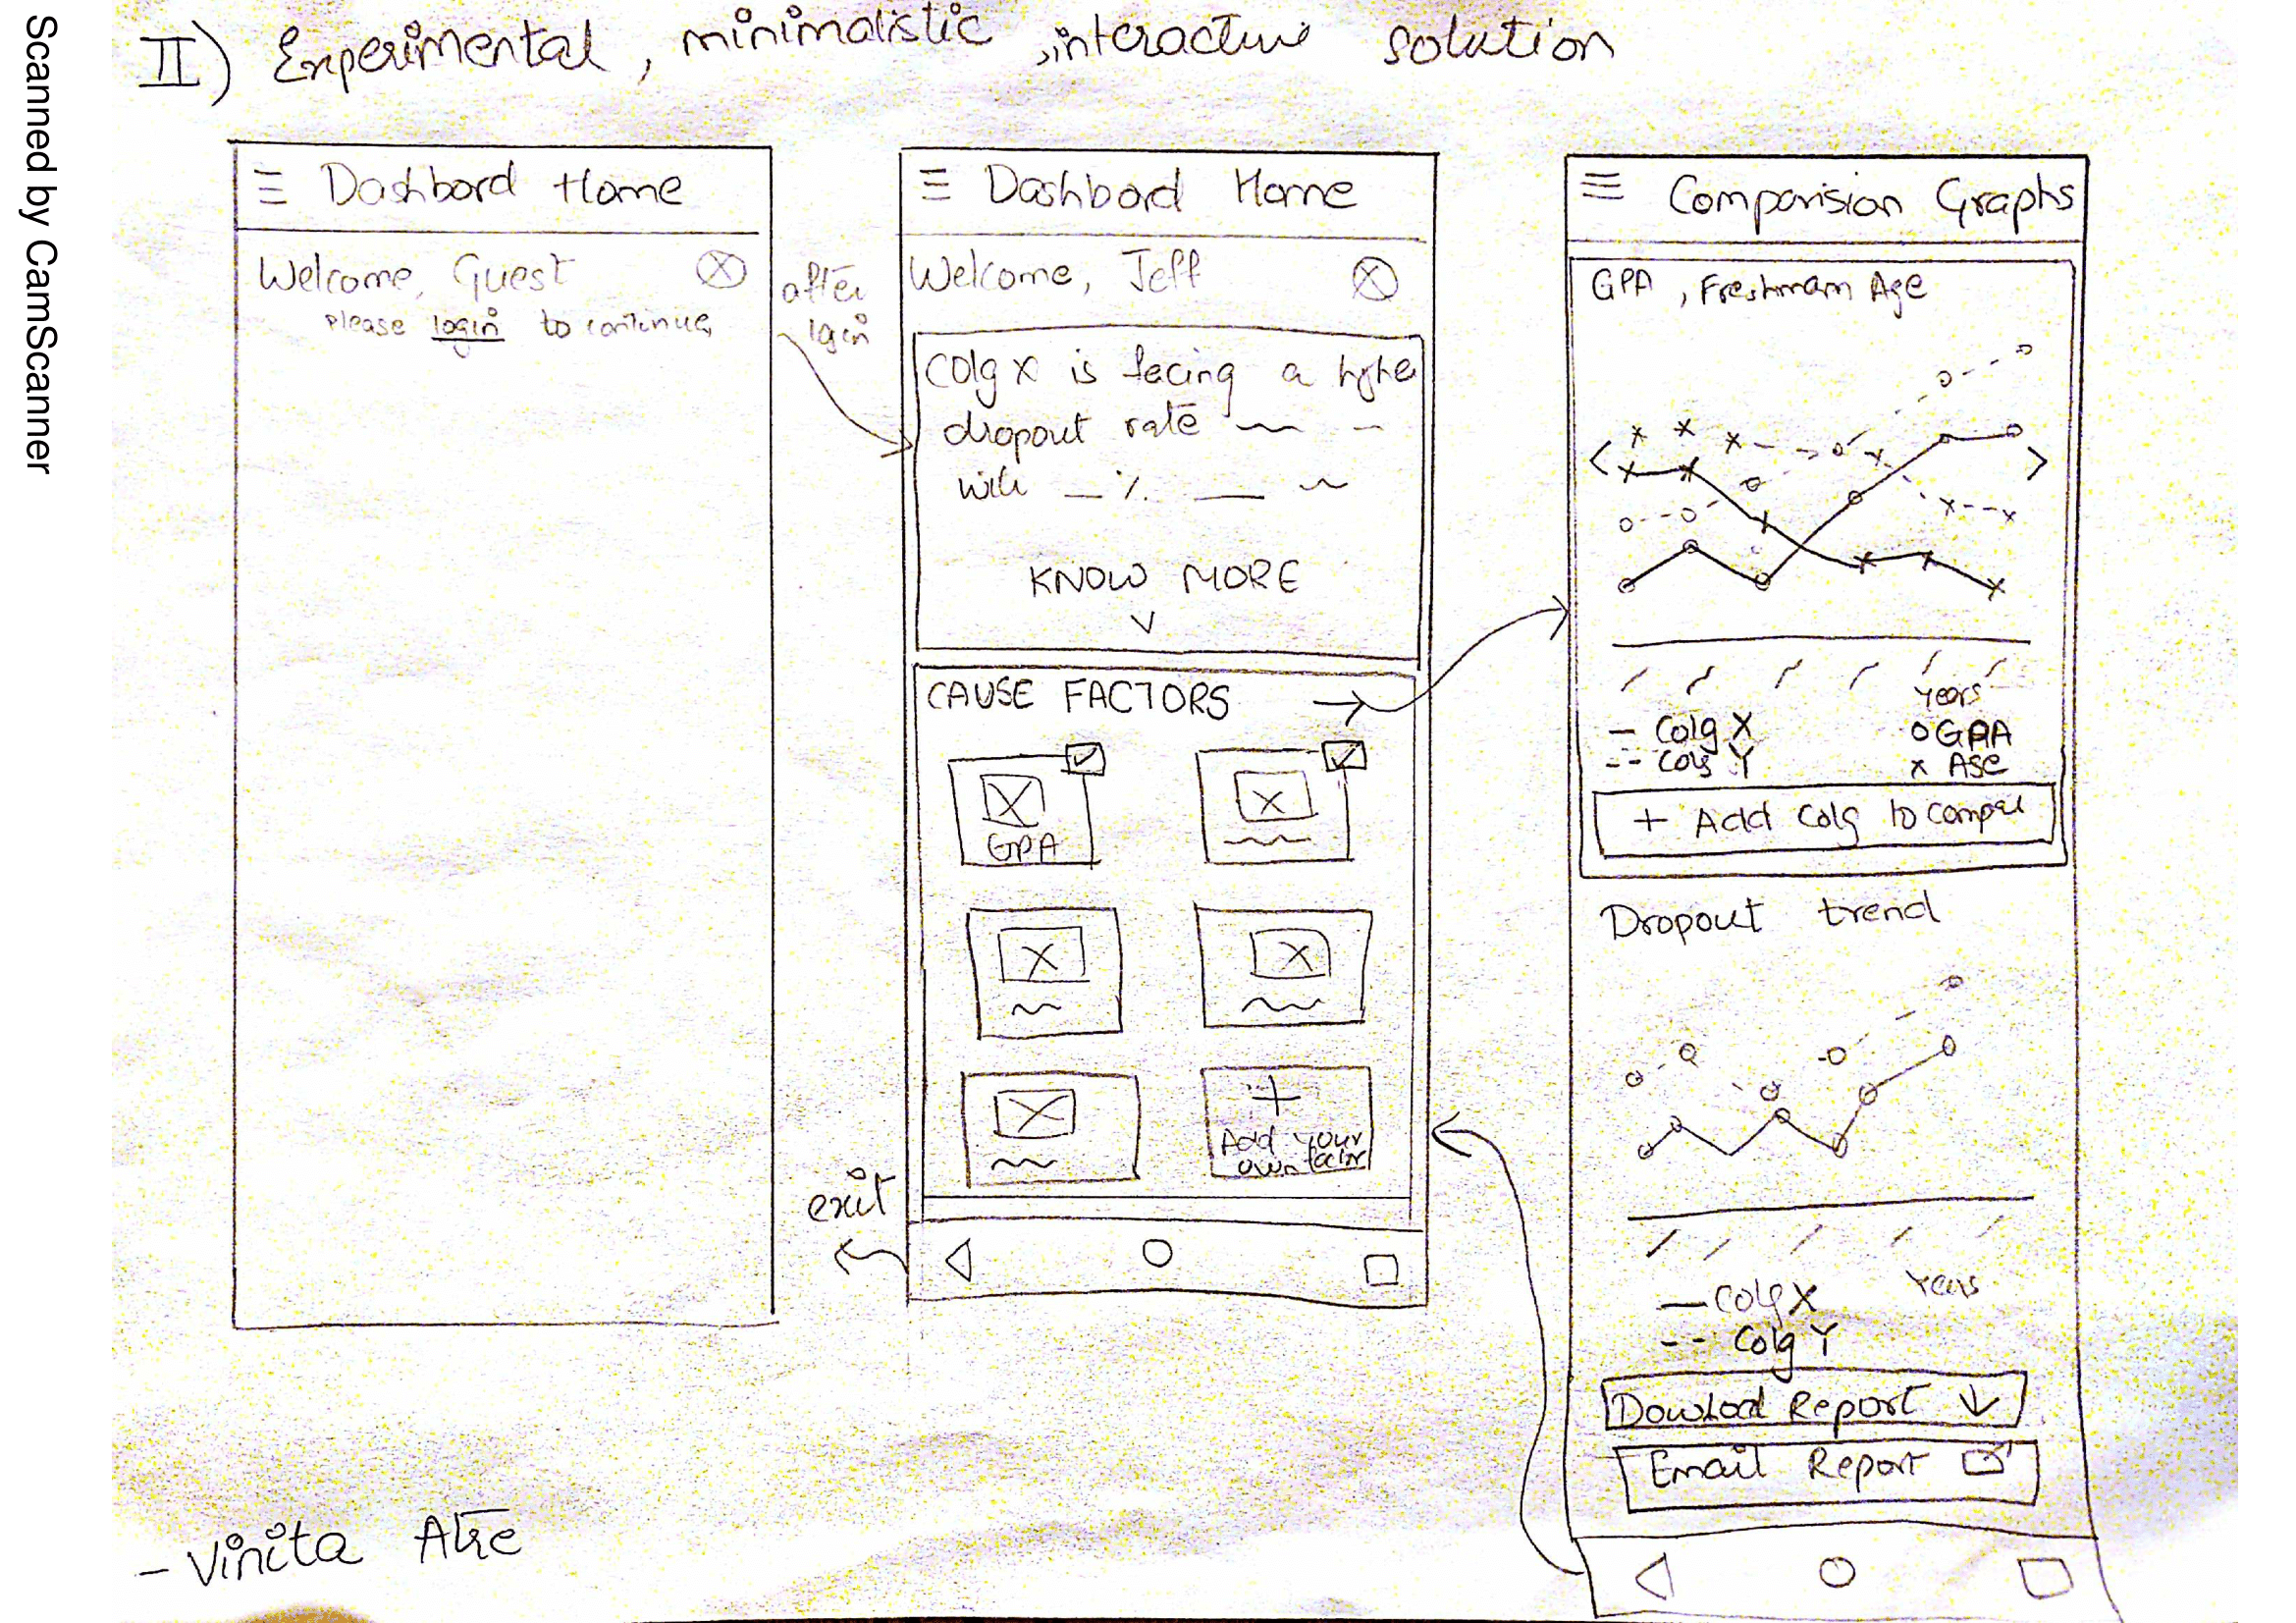 Scanned by CamScanner
II) Experimental, minimalistic, interactive solution
Dashbord Home
Welcome, Guest
please login to continue
after
login
Dashbord Home
Welcome, Jeff
Colg X is facing a
dropout rate
with %
KNOW MORE
CAUSE FACTORS
GPA
+
Add your
own factor
exit
Comparision Graphs
GPA, Freshmam Age
Years
Colg X
GPA
Colg Y
x Age
+ Add Colg to
Dropout trend
Years
Colg X
Colg Y
Dowload Report
Email Report
- Vinita